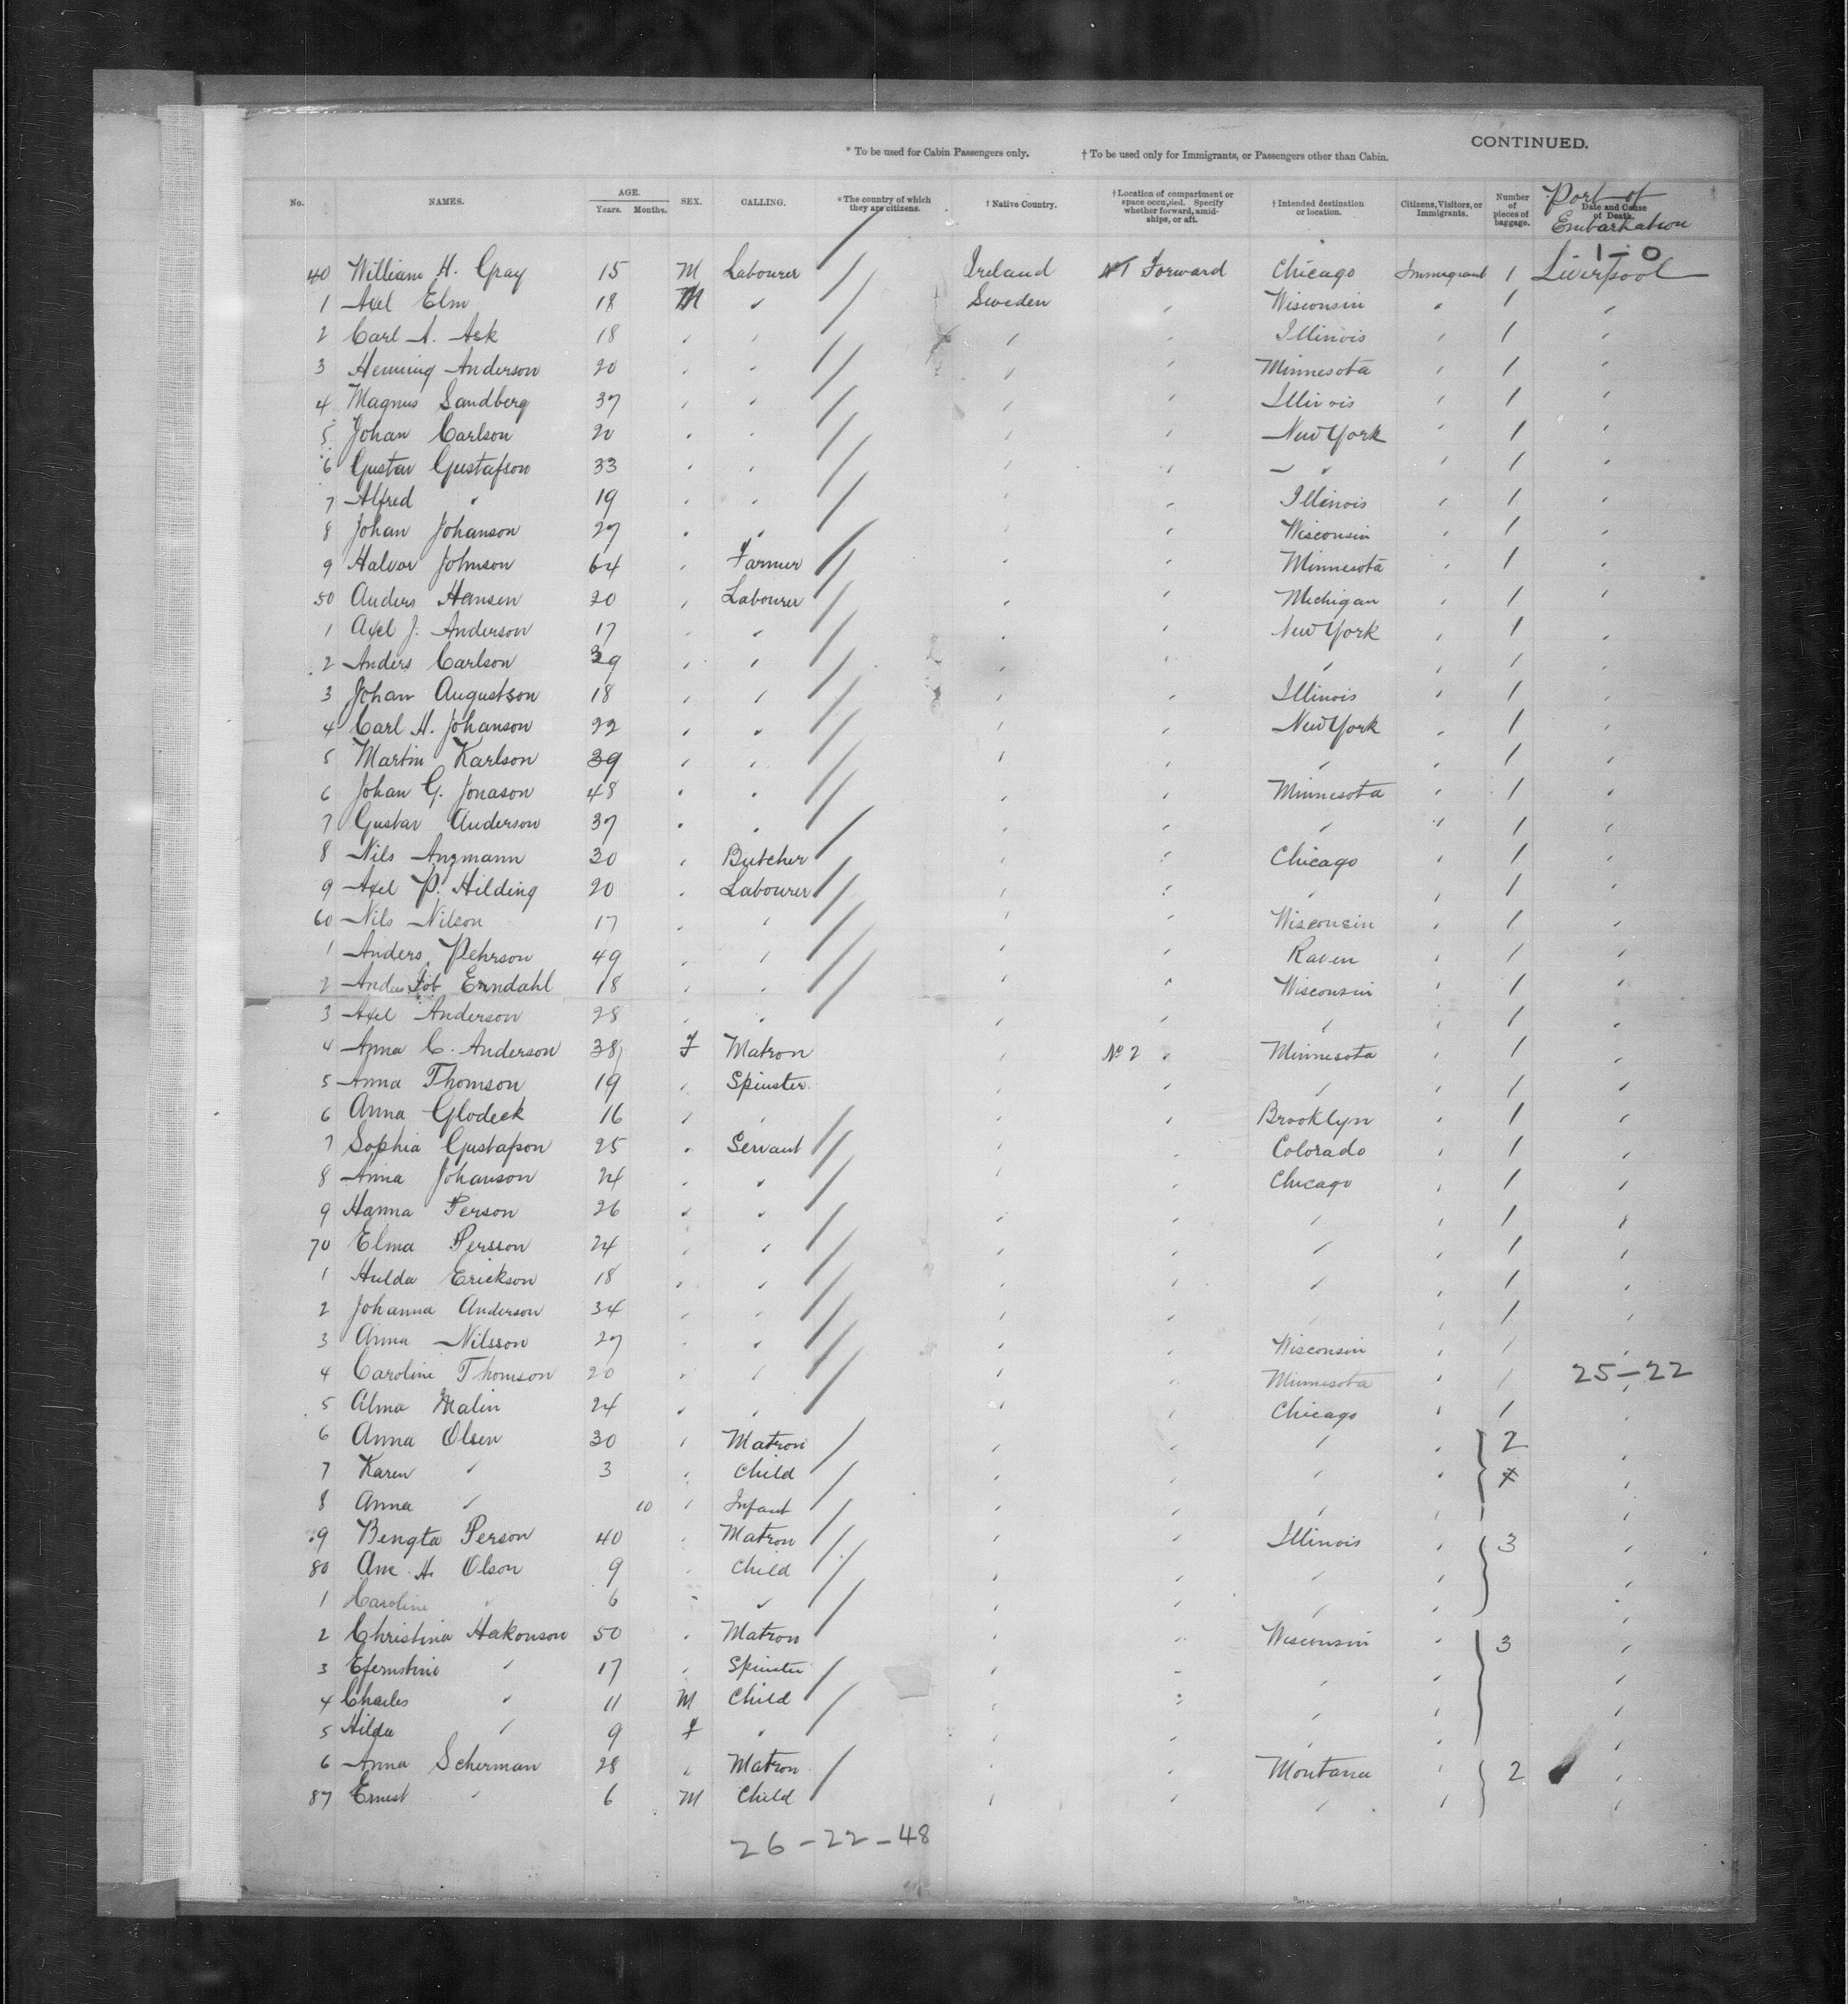 CONTINUED.
* To be used for Cabin Passengers only. † To be used only for Immigrants, or Passengers other than Cabin.
No. NAMES. AGE. Years. Months. SEX. CALLING. * The country of which they are citizens. † Native Country. † Location of compartment or space occupied. Specify whether forward, amidships, or aft. † Intended destination or location. Citizens, Visitors, or Immigrants. Number of pieces of baggage. Date and Cause of Death. Port of Embarkation
1-0
40 William H. Gray 15 M Labourer Ireland No 1 Forward Chicago Immigrant 1 Liverpool
1 Axel Elm 18 M " Sweden " Wisconsin " 1 "
2 Carl A. Ask 18 " " " " Illinois " 1 "
3 Henning Anderson 20 " " " " Minnesota " 1 "
4 Magnus Sandberg 37 " " " " Illinois " 1 "
5 Johan Carlson 20 " " " " New York " 1 "
6 Gustav Gustafson 33 " " " " " " 1 "
7 Alfred " 19 " " " " Illinois " 1 "
8 Johan Johanson 27 " " " " Wisconsin " 1 "
9 Halvor Johnson 64 " Farmer " " Minnesota " 1 "
50 Anders Hansen 20 " Labourer " " Michigan " 1 "
1 Axel J. Anderson 17 " " " " New York " 1 "
2 Anders Carlson 39 " " " " " " 1 "
3 Johan Augustson 18 " " " " Illinois " 1 "
4 Carl H. Johanson 22 " " " " New York " 1 "
5 Martin Karlson 39 " " " " " " 1 "
6 Johan G. Jonason 48 " " " " Minnesota " 1 "
7 Gustav Anderson 37 " " " " " " 1 "
8 Nils 30 " Butcher " " Chicago " 1 "
9 Axel P. Hilding 20 " Labourer " " " " 1 "
60 Nils Nilson 17 " " " " Wisconsin " 1 "
1 Anders Pehrson 49 " " " " Raven " 1 "
2 Anders Erndahl 18 " " " " Wisconsin " 1 "
3 Axel Anderson 28 " " " " " " 1 "
4 Anna C. Anderson 38 F Matron " No 2 " Minnesota " 1 "
5 Anna Thomson 19 " Spinster " " " " 1 "
6 Anna Glodeck 16 " " " " Brooklyn " 1 "
7 Sophia Gustafson 25 " Servant " " Colorado " 1 "
8 Anna Johanson 24 " " " " Chicago " 1 "
9 Hanna Person 26 " " " " " " 1 "
70 Elma Persson 24 " " " " " " 1 "
1 Hulda Erickson 18 " " " " " " 1 "
2 Johanna Anderson 34 " " " " " " 1 "
3 Anna Nilsson 27 " " " " Wisconsin " 1 "
4 Caroline Thomson 20 " " " " Minnesota " 1 "
25-22
5 Alma Malin 24 " " " " Chicago " 1 "
6 Anna Olsen 30 " Matron " " " " 2 "
7 Karen " 3 " Child " " " " "
8 Anna " 10 " Infant " " " " "
9 Bengta Person 40 " Matron " " Illinois " 3 "
80 Ane H. Olson 9 " Child " " " " "
1 Caroline " 6 " " " " " " "
2 Christina Hakonson 50 " Matron " " Wisconsin " 3 "
3 " 17 " Spinster " " " " "
4 Charles " 11 M Child " " " " "
5 Hilda " 9 F " " " " " "
6 Anna Scherman 28 " Matron " " Montana " 2 "
87 Ernest " 6 M Child " " " " "
26-22-48